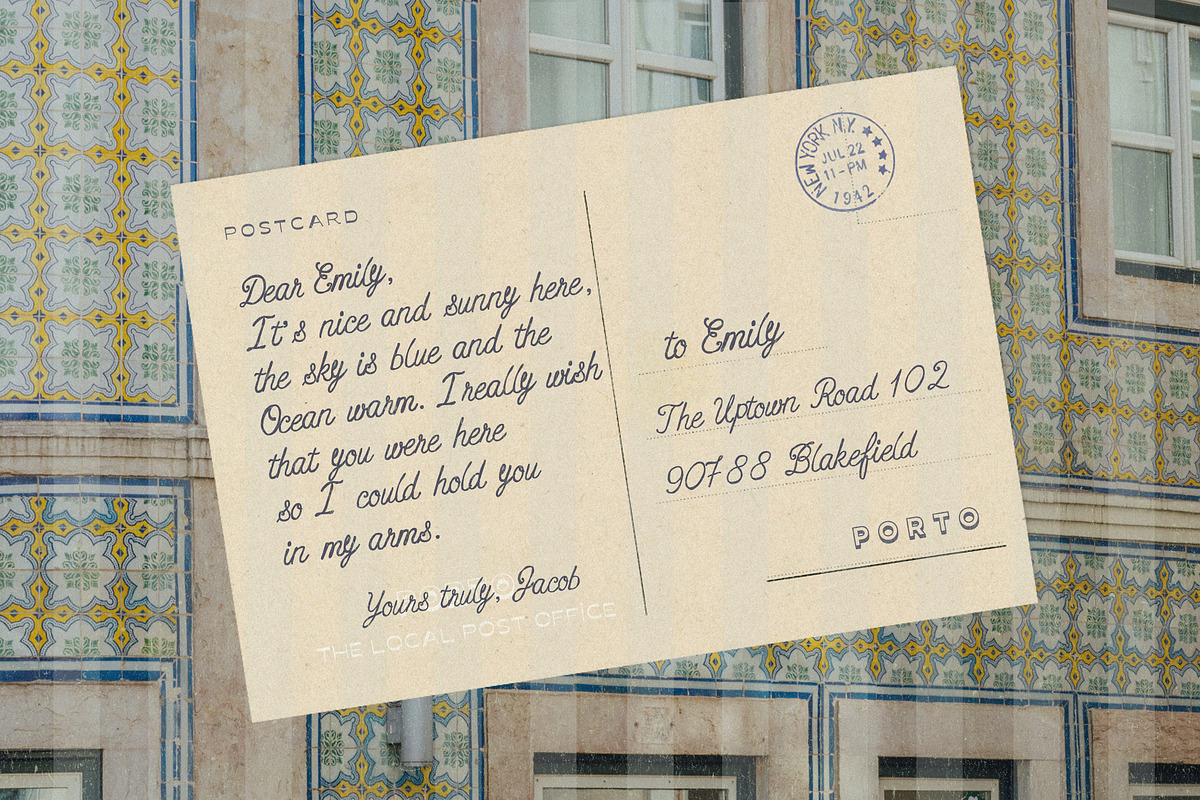 POSTCARD
Dear Emily,
It's nice and sunny here,
the sky is blue and the
Ocean warm. I really wish
that you were here
so I could hold you
in my arms.
Yours truly, Jacob
THE LOCAL POST OFFICE
NEW YORK N.Y.
JUL 22
11-PM
1942
to Emily
The Uptown Road 102
90788 Blakefield
PORTO